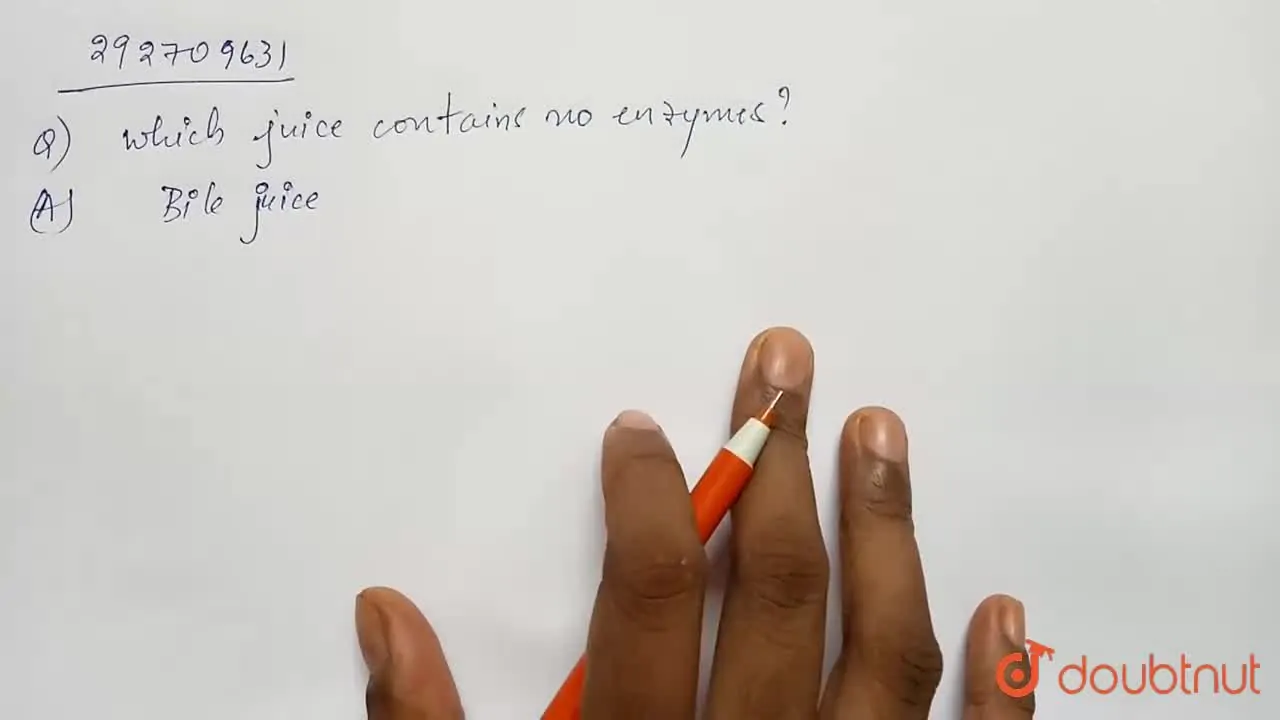 292709631
Q) which juice contains no enzymes?
(A) Bile juice
doubtnut